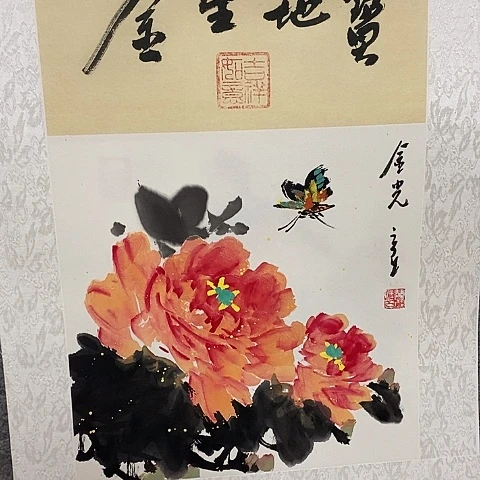 寶地生金
吉祥如意
金光